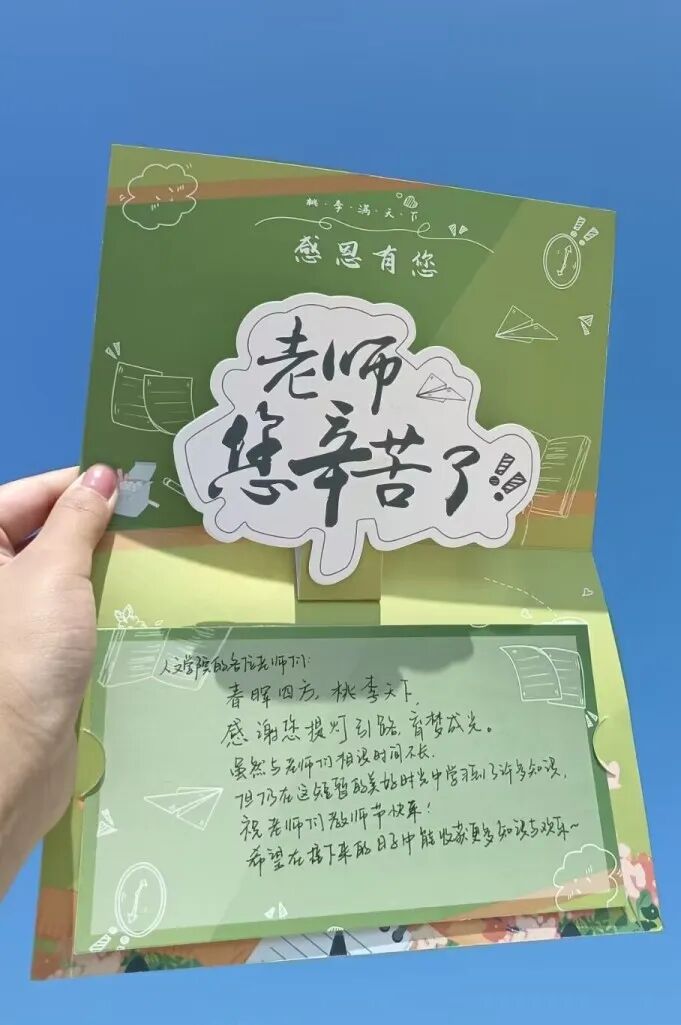 桃·李·满·天·下
感恩有您
老师
您辛苦了!!
人文学院的各位老师们:
春晖四方,桃李天下,
感谢您提灯引路,育梦成光。
虽然与老师们相识时间不长,
但仍在这短暂的美好时光中学习到了许多知识,
祝老师们教师节快乐!
希望在接下来的日子中能收获更多知识与欢乐~